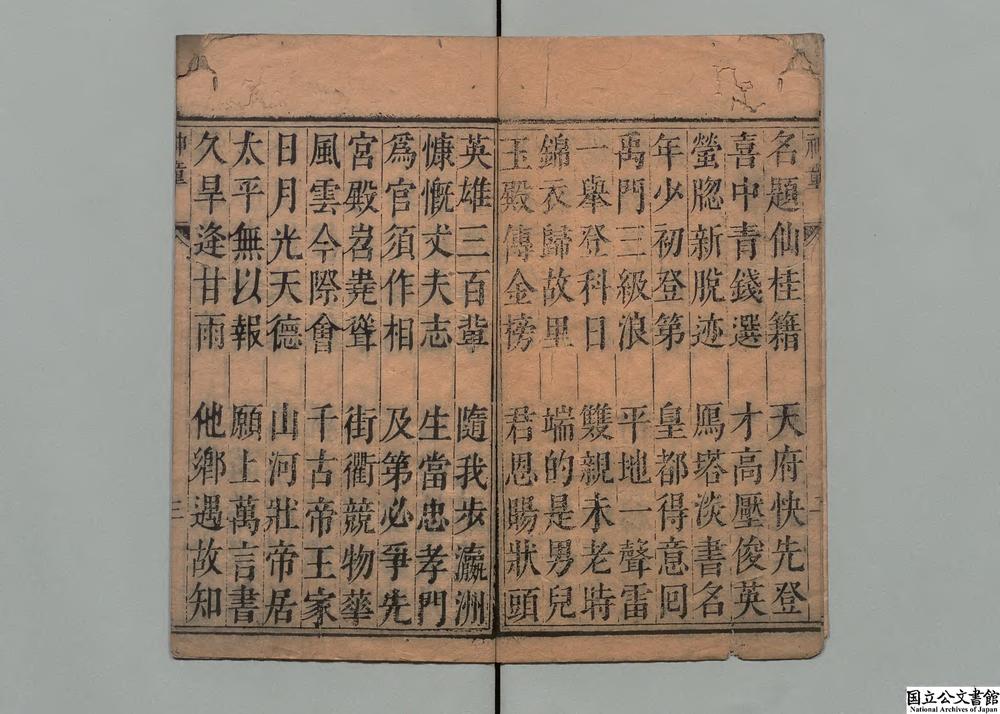 神童
名題仙桂籍 天府快先登
喜中青錢選 才高壓俊英
螢牕新脫迹 鴈塔淡書名
年少初登第 皇都得意囘
禹門三級浪 平地一聲雷
一舉登科日 雙親未老時
錦衣歸故里 端的是男兒
玉殿傳金榜 君恩賜狀頭
英雄三百輩 隨我步瀛洲
慷慨丈夫志 生當忠孝門
爲官須作相 及第必爭先
宮殿岧嶢聳 街衢競物華
風雲今際會 千古帝王家
日月光天德 山河壯帝居
太平無以報 願上萬言書
久旱逢甘雨 他鄉遇故知
神童
三
国立公文書館
National Archives of Japan